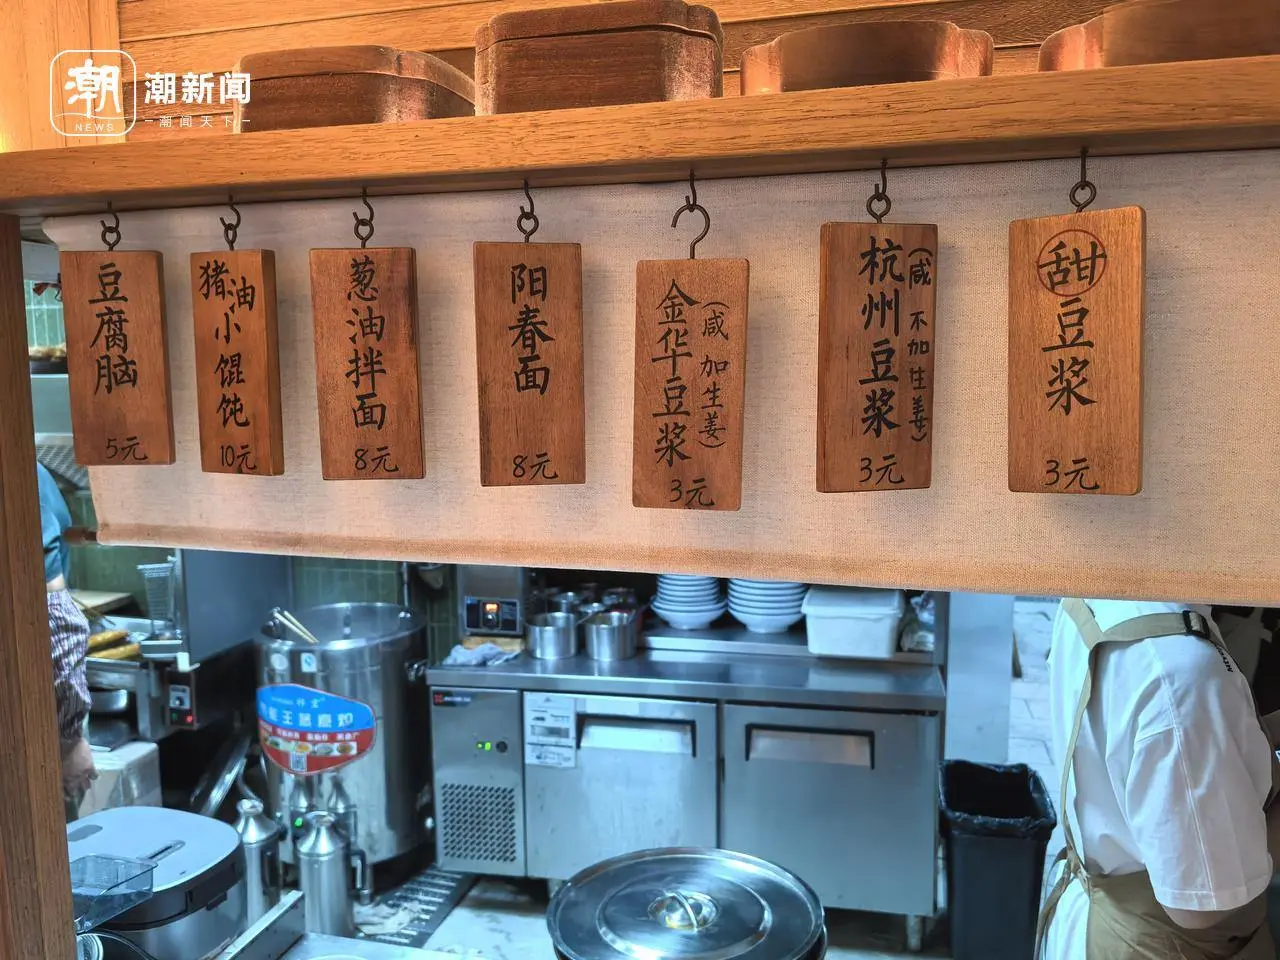 潮
NEWS
潮新闻
潮闻天下
豆腐脑
5元
猪油小馄饨
10元
葱油拌面
8元
阳春面
8元
金华豆浆
(咸 加生姜)
3元
杭州豆浆
(咸 不加生姜)
3元
甜豆浆
3元